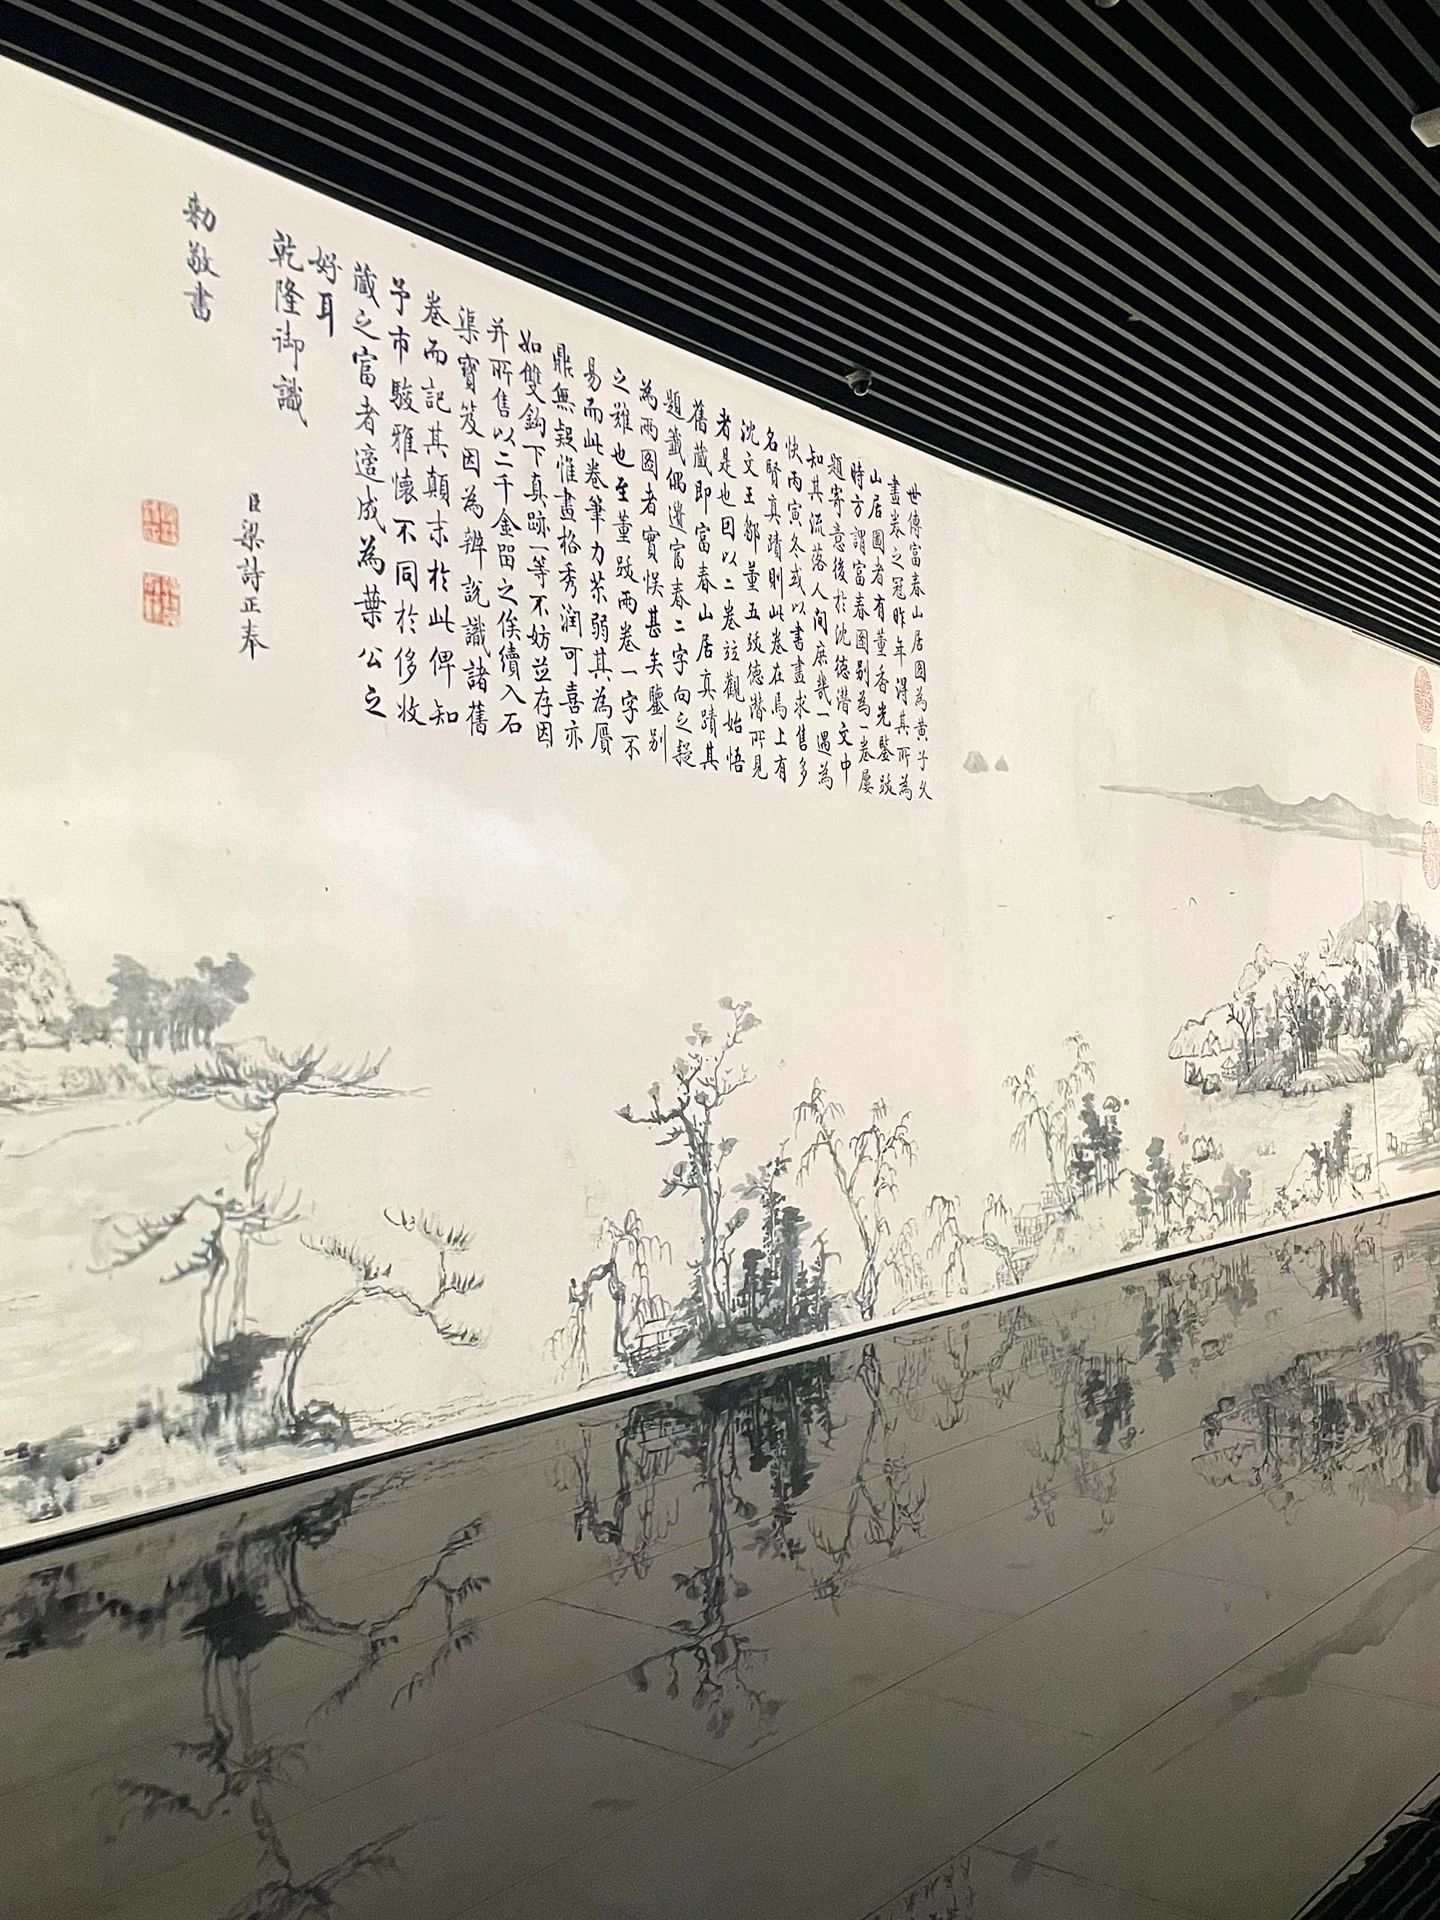 世傳富春山居圖為黃子久
畫卷之冠昨年得其所為
山居圖者有董香光鑒跋
時方謂富春圖别為一卷屢
題寄意後於沈德潛文中
知其流落人間庶幾一遇為
快丙寅冬或以書畫求售多
名賢真蹟則此卷在焉上有
沈文王鄒董五跋德潛所見
者是也因以二卷竝觀始悟
舊藏即富春山居真蹟其
題籤偶遺富春二字向之疑
為兩圖者實悮甚矣鑒别
之難也至董跋兩卷一字不
易而此卷筆力苶弱其為贋
鼎無疑惟畫格秀潤可喜亦
如雙鈎下真跡一等不妨並存因
并所售以二千金留之俟續入石
渠寶笈因為辨說識諸舊
卷而記其顛末於此俾知
予市駿雅懷不同於侈收
藏之富者適成為葉公之
好耳
乾隆御識
臣梁詩正奉
勅敬書